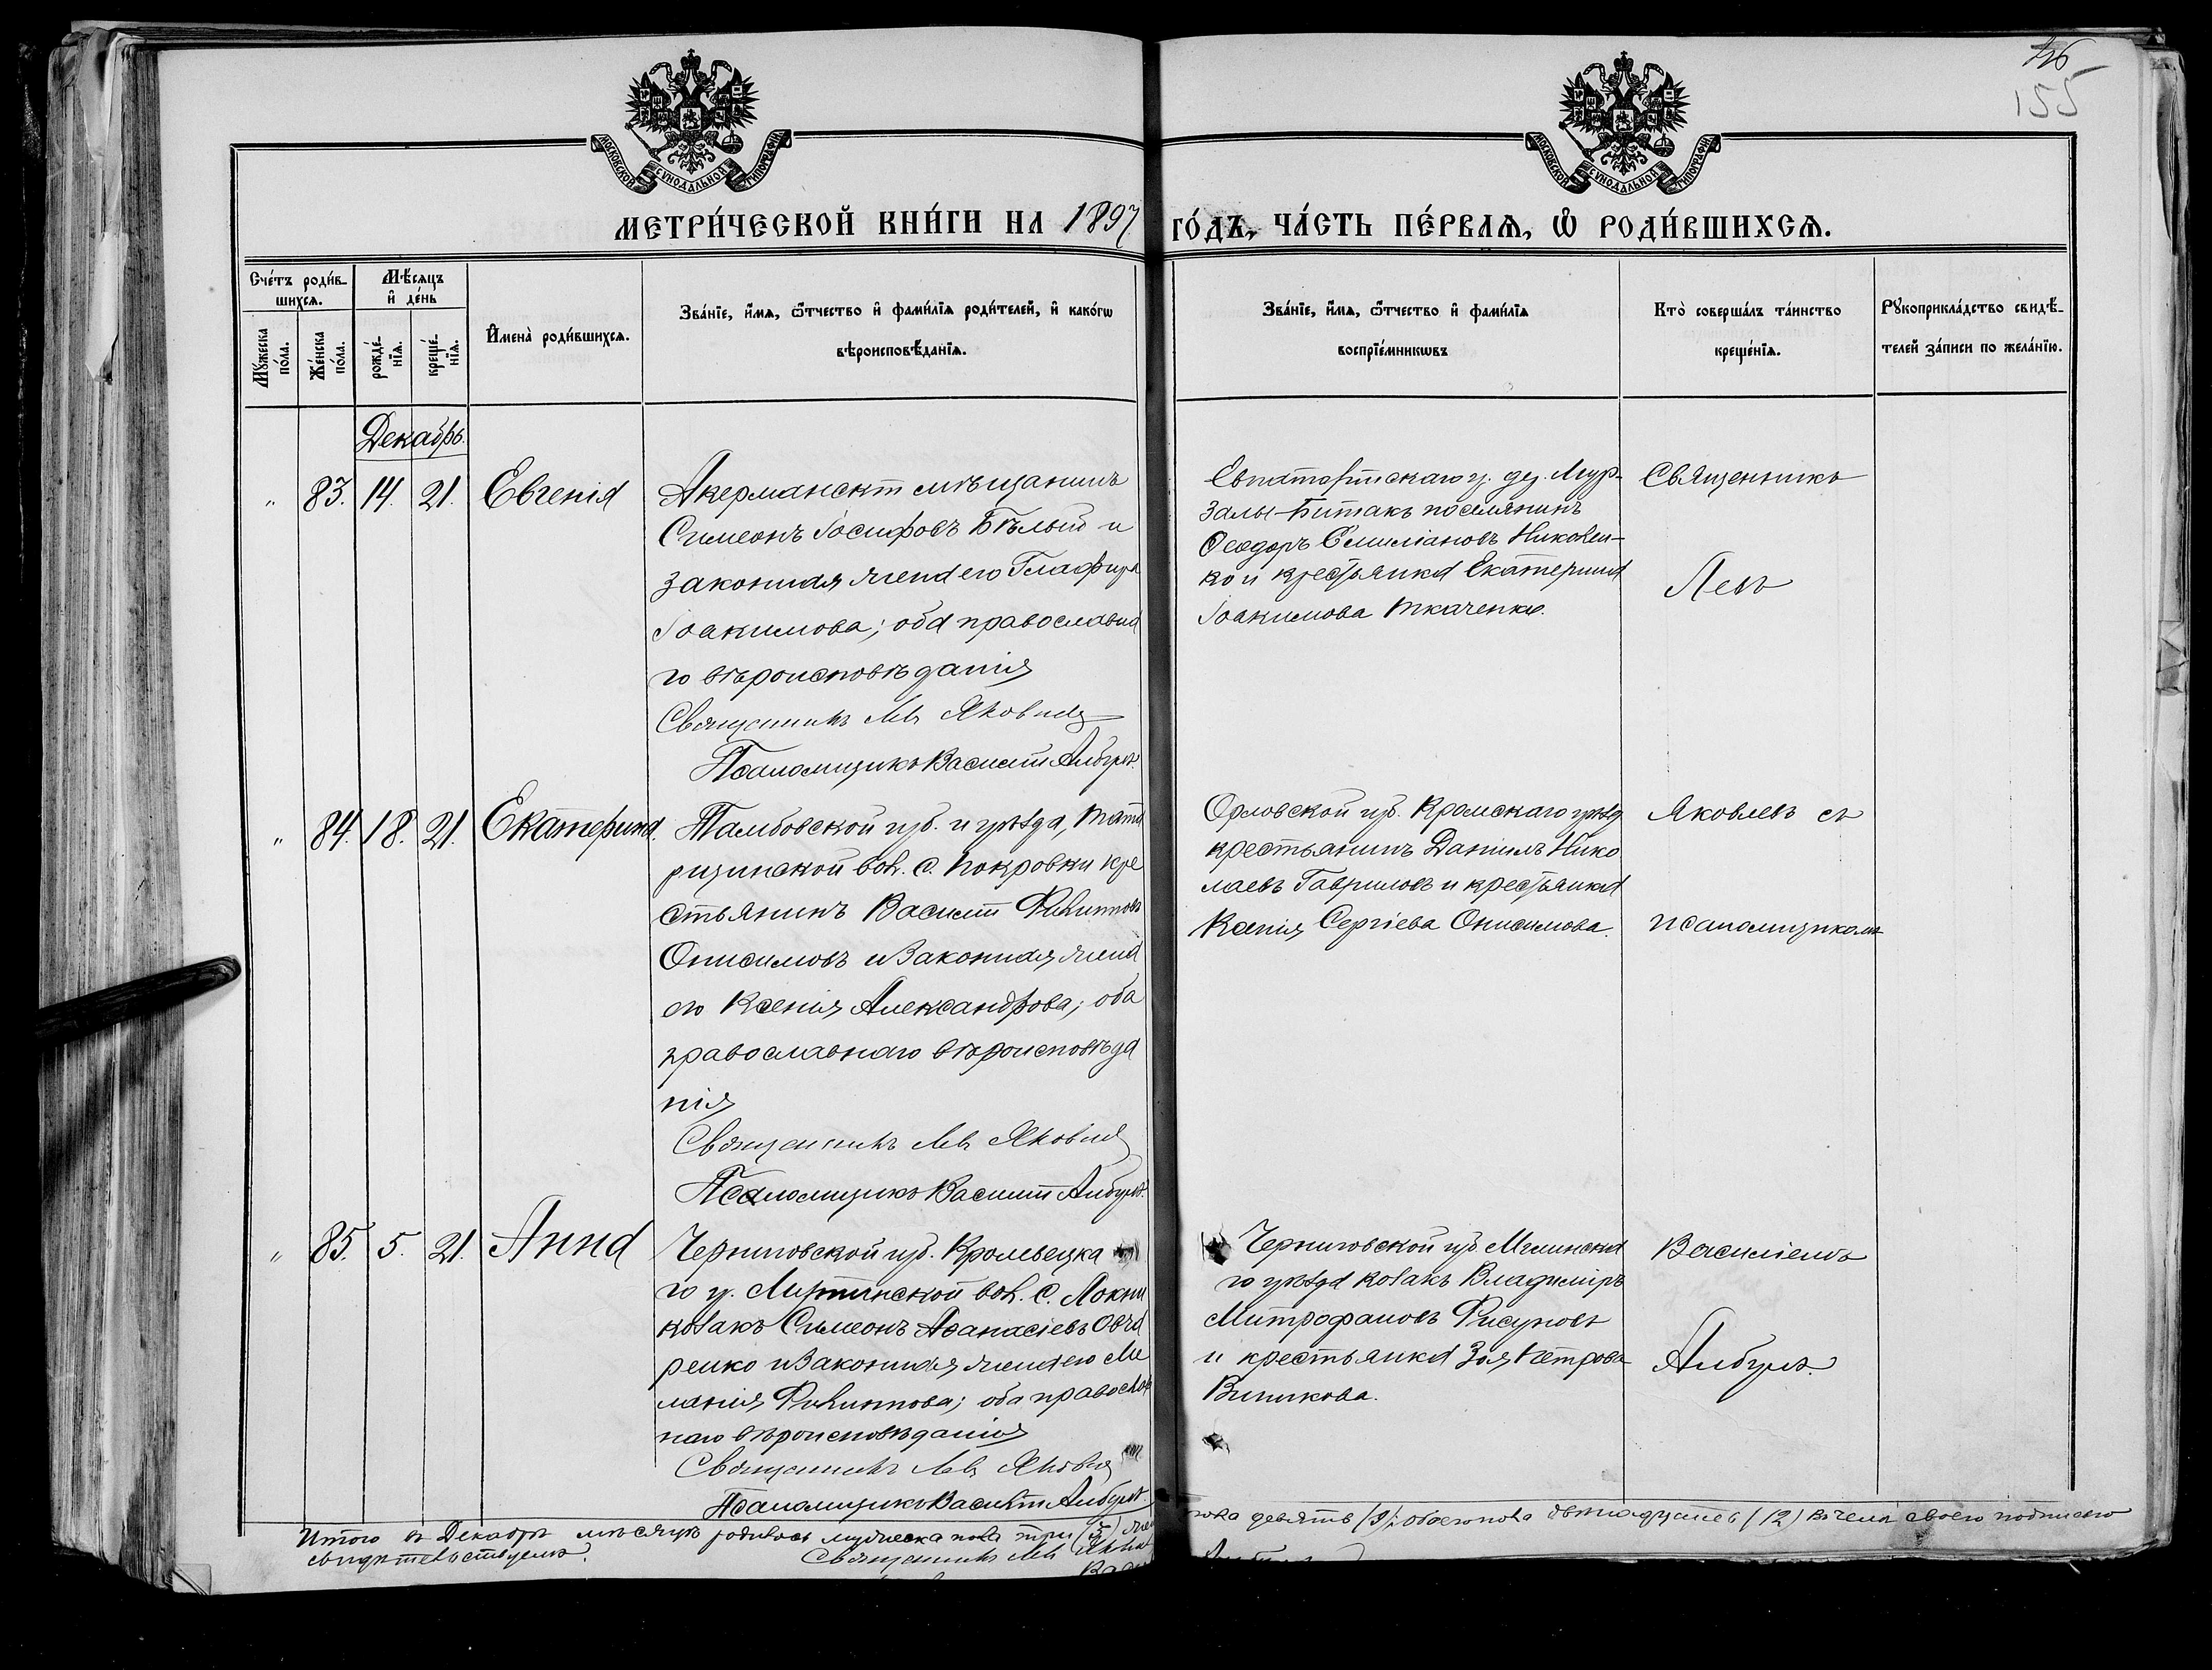 146
155
МОСКОВСКОЙ СѴНОДАЛЬНОЙ ТИПОГРАФІИ
МОСКОВСКОЙ СѴНОДАЛЬНОЙ ТИПОГРАФІИ
МЕТРИ́ЧЕСКОЙ КНИ́ГИ НА 1897 ГО́ДЪ, ЧА́СТЬ ПЕ́РВАѦ, Ѽ РОДИ́ВШИХСѦ.
Сче́тъ роди́в-
шихсѧ.
Мꙋ́жеска по́ла.
Же́нска по́ла.
Мѣ́сѧцъ
и҆ де́нь
рожде́-нїѧ.
креще́-нїѧ.
И҆мена̀ роди́вшихсѧ.
Зва́нїе, и҆́мѧ, ѻ҆́тчество и҆ фами́лїѧ роди́телей, и҆ како́гѡ
вѣроисповѣ́данїѧ.
Зва́нїе, и҆́мѧ, ѻ҆́тчество и҆ фами́лїѧ
воспрїе́мникѡвъ
Кто̀ соверша́лъ та́инство
креще́нїѧ.
Рꙋкоприкла́дство свидѣ́-
телей за́писи по жела́нїю.
Декабрь.
" 83. 14. 21. Евгенія
Акерманскій мѣщанинъ
Симеонъ Іосифовъ Бѣлый и
законная жена его Глафира
Іоакимова; оба православна
го вѣроисповѣданія
Священникъ Левъ Яковлев
Псаломщикъ Василій Албулъ.
Евпаторійскаго у. дер. Мур-
залы-Битакъ поселянинъ
Ѳеодоръ Емиліановъ Николен-
ко и крестьянка Екатерина
Іоакимова Ткаченко.
Священникъ
Левъ
" 84. 18. 21. Екатерина.
Тамбовской губ. и уѣзда,
рищинской вол. с. Покровки кре
стьянинъ Василій Филипповъ
Онисимовъ и законная жена
его Ксенія Александрова; оба
православнаго вѣроисповѣда
нія
Священникъ Левъ Яковлев
Псаломщикъ Василій Албулъ.
Орловской губ. Кромскаго уѣзд
крестьянинъ Даніилъ Нико
лаевъ Гавриловъ и крестьянка
Ксенія Сергіева Онисимова.
Яковлевъ съ
псаломщикомъ
" 85. 5. 21. Анна
Черниговской губ. Кролевецка
го у. вол. с. Локни
козакъ Симеонъ Аѳанасіевъ Овча
ренко и законная жена его Ме
ланія Филиппова; оба православ
наго вѣроисповѣданія
Священникъ Левъ Яковлев
Псаломщикъ Василій Албулъ.
Черниговской губ Мглинска
го уѣзда козакъ Владиміръ
Митрофановъ Рисуновъ
и крестьянка Зоя Петрова
Василіемъ
Албулъ.
Итого въ Декабрѣ мѣсяцѣ родилось мужеска пола три (3) жен
пола девять (9); обоего пола двѣнадцать (12) въ чемъ своею подписью
свидѣтельствуемъ.
Священникъ Левъ